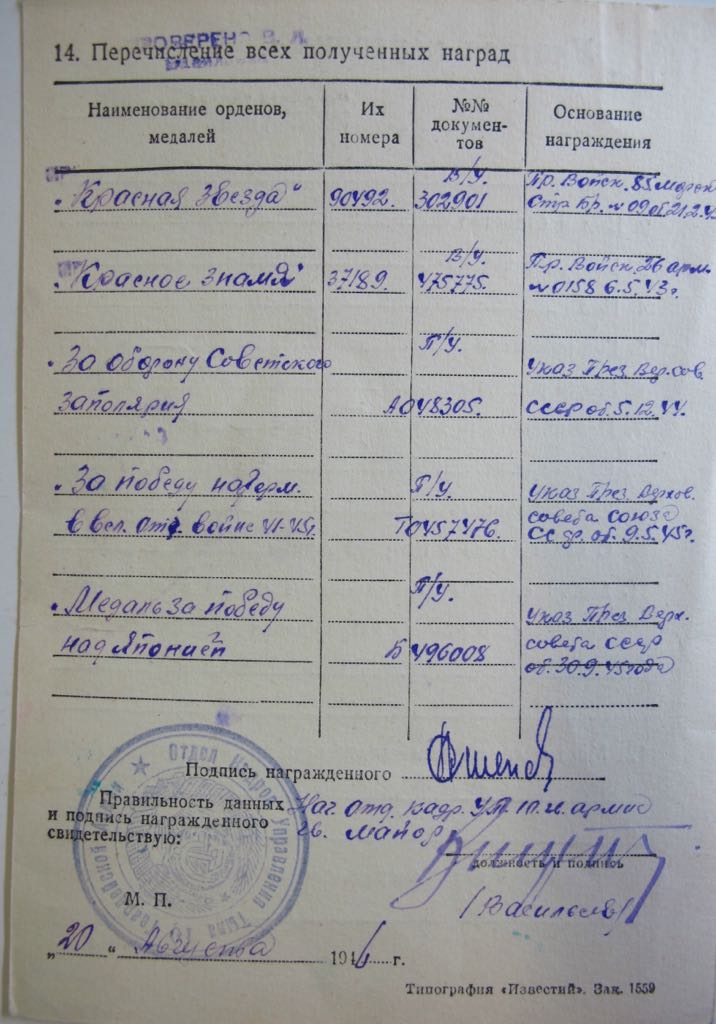 ПРОВЕРЕНО
14. Перечисление всех полученных наград
Наименование орденов, медалей
Их номера
№№ документов
Основание награждения
„Красная Звезда"
90492.
В/У.
302901
Пр. Войск. 85 морск
Стр Бр. №09 от 21.2.4
„Красное знамя"
37189.
В/У.
475775.
Пр. Войск 26 арм.
№0158 6.5.43г.
„За оборону Советского
Заполярия
П/У.
А048305.
Указ През Вер. сов
СССР от. 5.12.44.
„За победу на Герм.
в вел. отд войне 41-45г.
П/У.
Т0457476.
Указ През Верхов.
совета союза
СС др. от. 9.5.45г.
„Медаль за победу
над Японией
П/У.
Б 496008
Указ През Верх.
совета СССР
от. 30.9.45 года
Подпись награжденного
Правильность данных
и подпись награжденного
свидетельствую:
Нач. отд. кадр. УТ 10 г. армии
гв. майор
должность и подпись
М. П.
„20" Августа 1946 г.
Типография «Известий». Зак. 1559